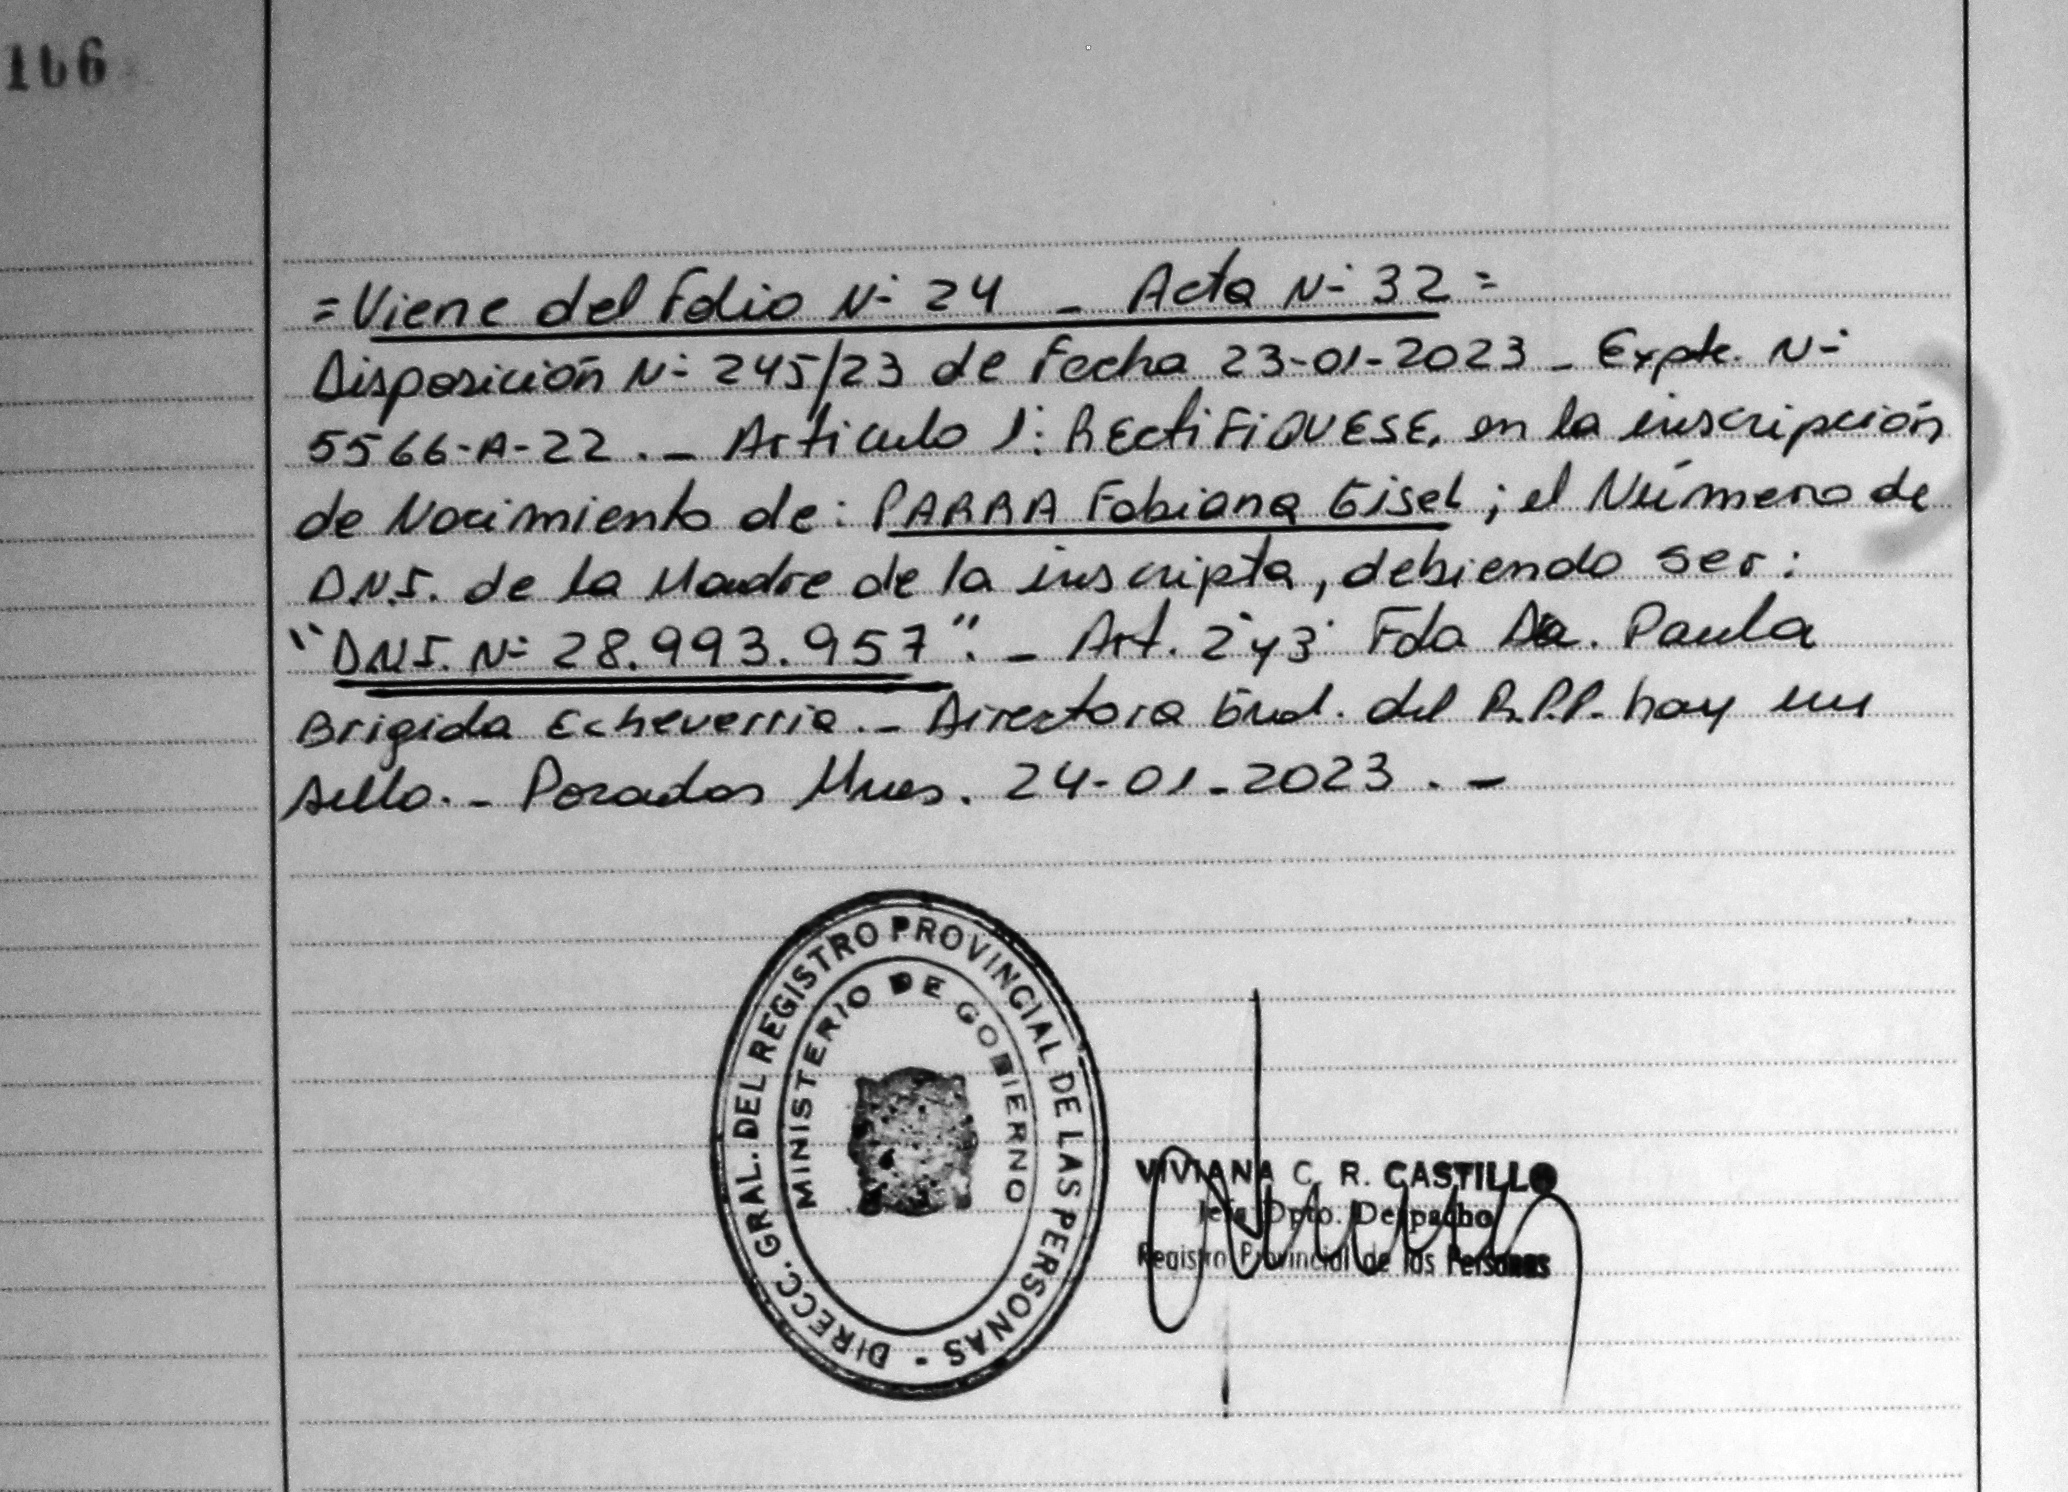 166
=Viene del Folio N° 24 _ Acta N° 32=
Disposición N° 245/23 de Fecha 23-01-2023 _ Expte. N°
5566-A-22._ Articulo 1°: RECTIFIQUESE, en la inscripción
de Nacimiento de: PARRA Fabiana Gisel; el Número de
D.N.I. de la Madre de la inscripta, debiendo ser:
"D.N.I. N° 28.993.957"._ Art. 2° y 3° Fdo Dra. Paula
Brigida Echeverria._ Directora Gral. del R.P.P. hay un
sello._ Posadas Mnes. 24-01-2023._
DIRECC. GRAL. DEL REGISTRO PROVINCIAL DE LAS PERSONAS -
MINISTERIO DE GOBIERNO
VIVIANA C. R. CASTILLO
Jefa Dpto. Despacho
Registro Provincial de las Personas